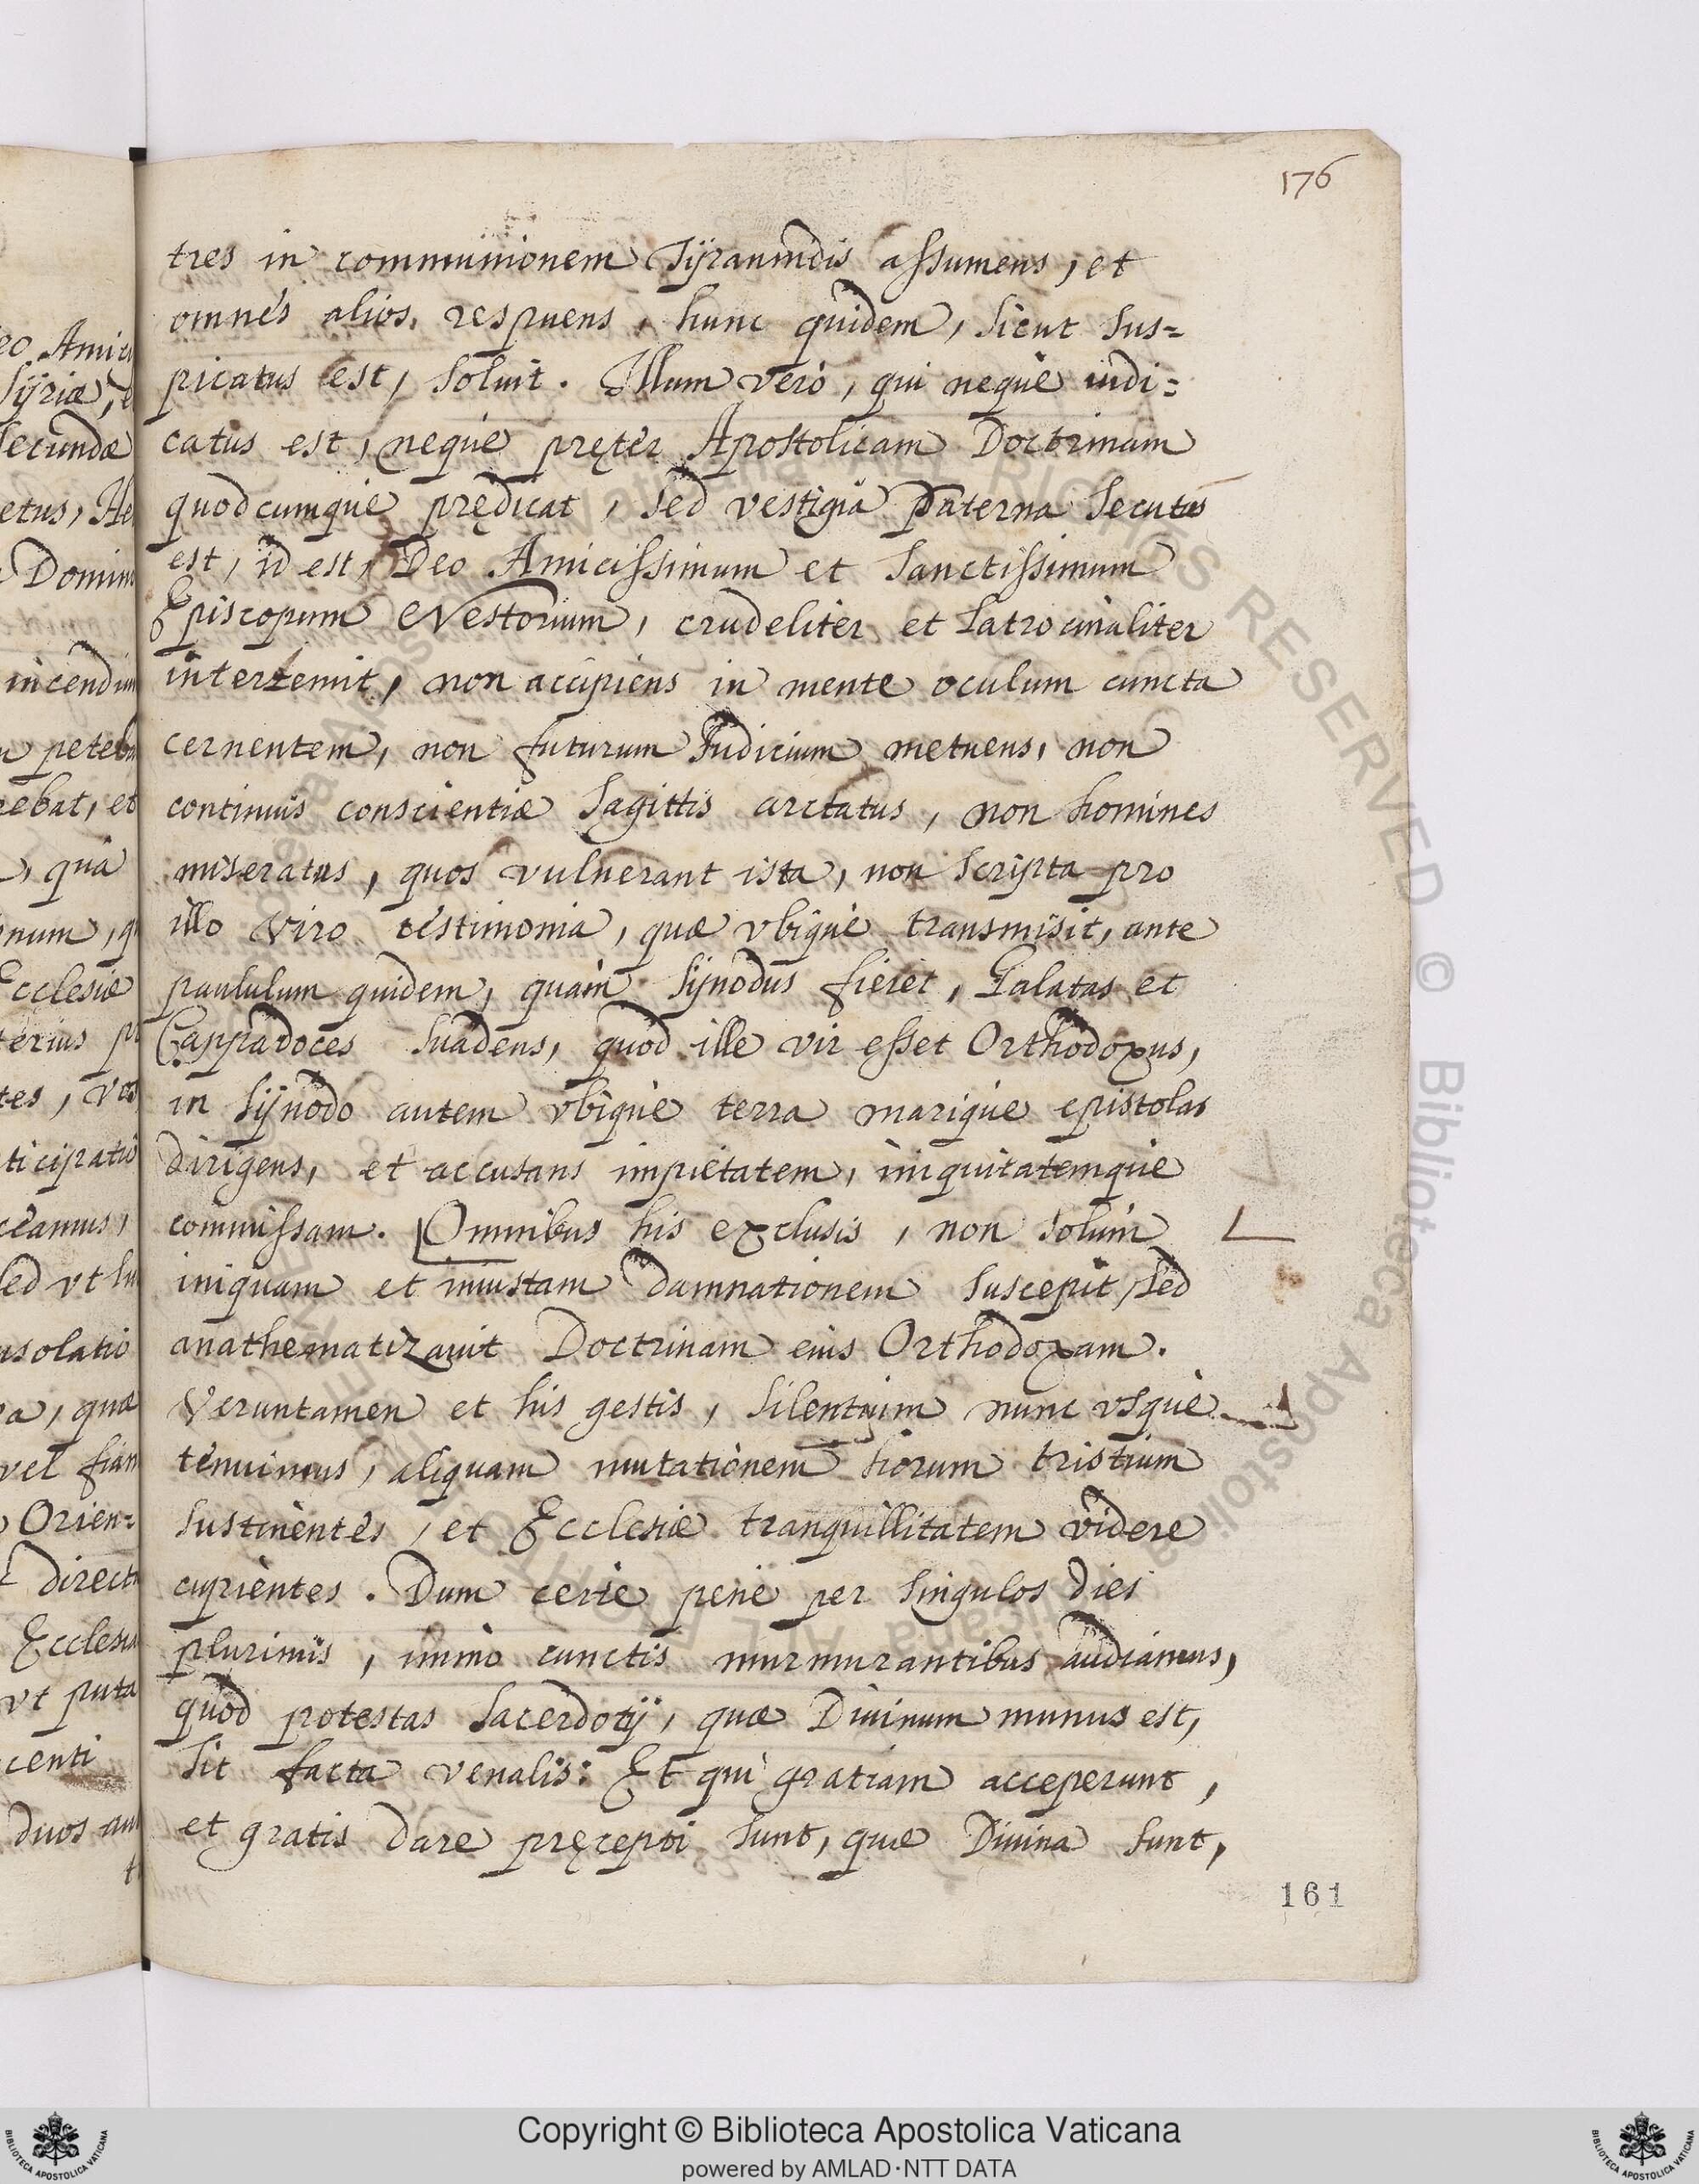 176
tres in communionem Tÿrannidis assumens, et
omnes alios, respuens, hunc quidem, sicut sus=
picatus est, soluit. Illum verò, qui neque iudi=
catus est, neque pręter Apostolicam Doctrinam
quodcumque prędicat, sed vestigia paterna secutus
est, id est, Deo Amicissimum et Sanctissimum
Episcopum Nestorium, crudeliter et latrocinaliter
interemit, non accipiens in mente oculum cuncta
cernentem, non futurum Iudicium metuens, non
continuis conscientiæ sagittis arctatus, non homines
miseratus, quos vulnerant ista, non scripta pro
illo viro testimonia, quæ vbique transmisit, ante
paululum quidem, quàm Sÿnodus fieret, Galatas et
Cappadoces suadens, quod ille vir esset Orthodoxus,
in Sÿnodo autem vbique terra marique epistolas
dirigens, et accusans impietatem, iniquitatemque
commissam. Omnibus his exclusis, non solum
iniquam et iniustam damnationem suscepit, sed
anathematizauit Doctrinam eius Orthodoxam.
Veruntamen et his gestis, silentium nunc vsque
tenuimus, aliquam mutationem horum tristium
sustinentes, et Ecclesiæ tranquillitatem videre
cupientes. Dum certe pene per singulos dies
plurimis, immo cunctis murmurantibus audiamus,
quod potestas Sacerdotij, quæ Diuinum munus est,
sit facta venalis: Et qui gratiam acceperunt,
et gratis dare pręcepti sunt, quæ Diuina sunt,
161
Copyright © Biblioteca Apostolica Vaticana
powered by AMLAD·NTT DATA